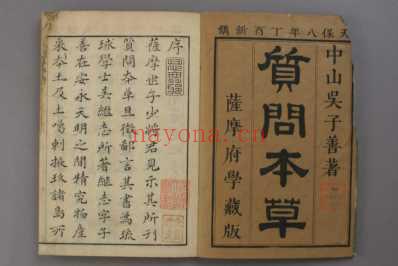 天保八年丁酉新鐫
中山吳子善著
質問本草
薩摩府學藏版
序
薩摩世子少將君見示其所刊
質問本草且徵鄙言其書為琉
球學士吳繼志所著繼志字子
善在安永天明之間精究物產
采本土及土噶剌掖玖諸島所
nayona.cn